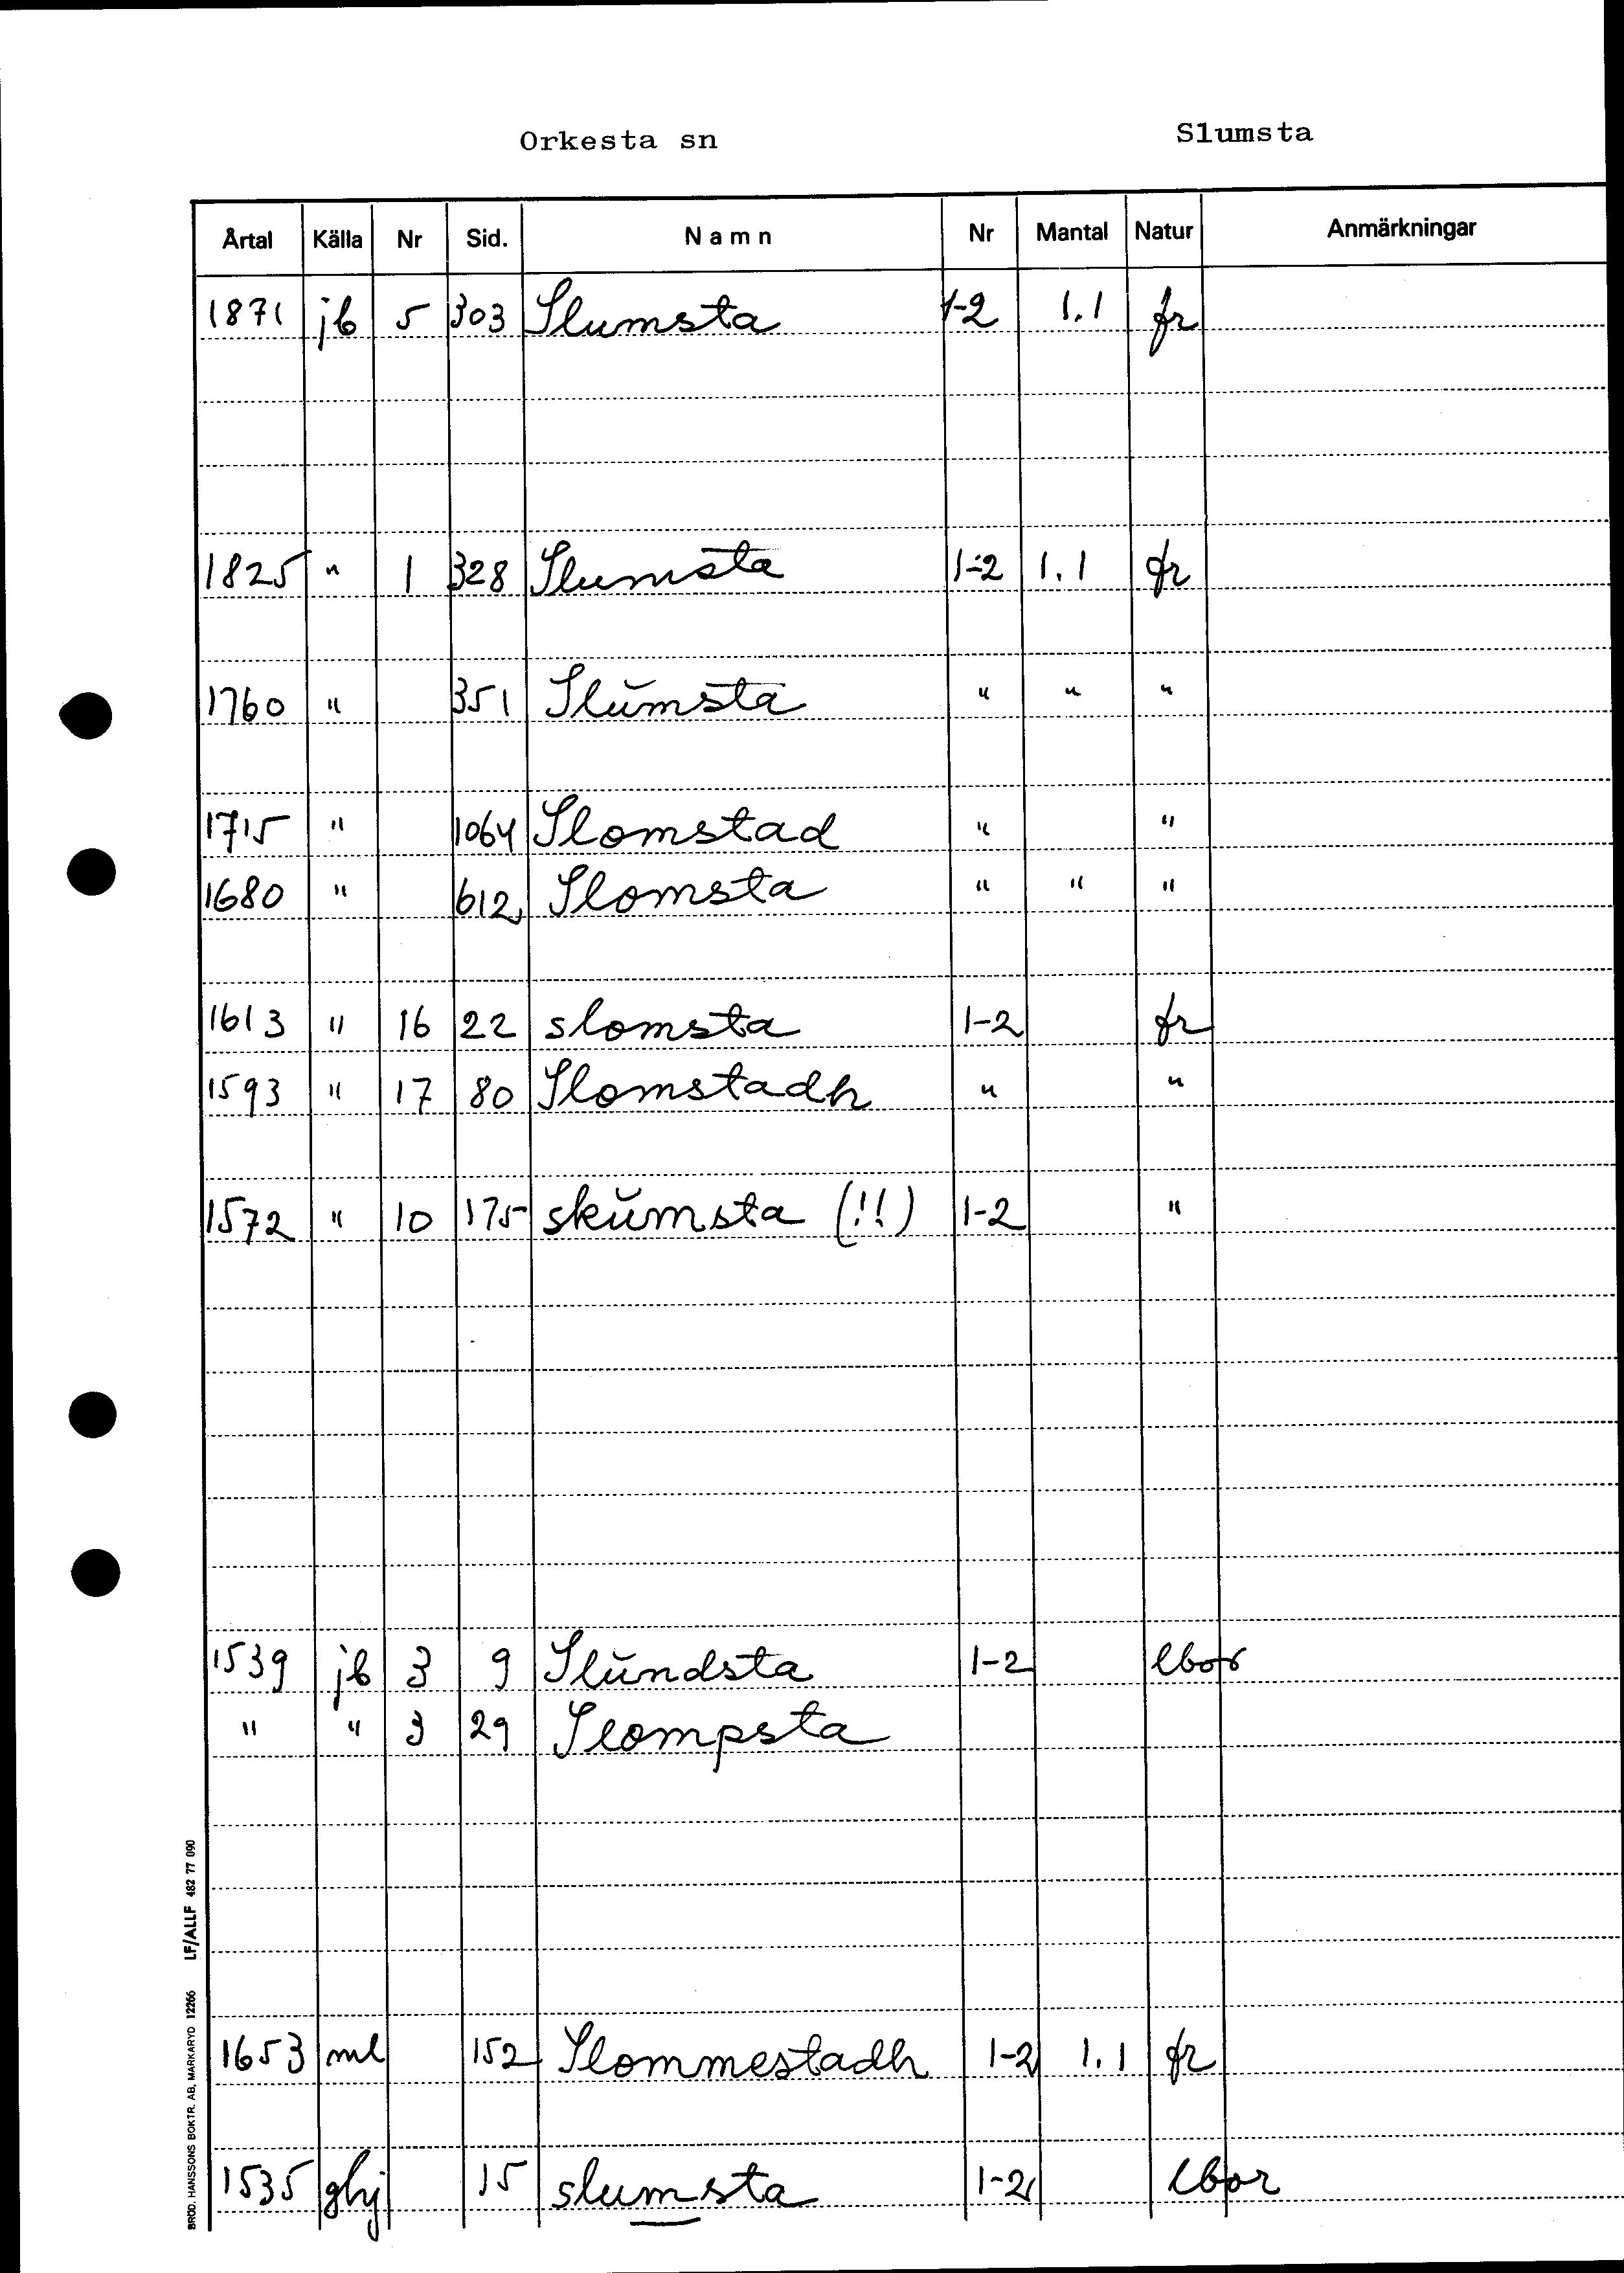 Orkesta sn Slumsta
Årtal Källa Nr Sid. Namn Nr Mantal Natur Anmärkningar
1871 jb 5 303 Slumsta 1-2 1.1 fr
1825 " 1 328 Slumsta 1-2 1.1 fr
1760 " 351 Slŭmsta " " "
1715 " 1064 Slomstad " "
1680 " 612 Slomsta " " "
1613 " 16 22 slomsta 1-2 fr
1593 " 17 80 Slomstadh " "
1572 " 10 175 skŭmsta (!!) 1-2 "
1539 jb 3 9 Slŭndsta 1-2 lbor
" " 3 29 Slompsta
1653 ml 152 Slommestadh 1-2 1.1 fr
1535 ghj 15 slumsta 1-2 lbor
BRÖD. HANSSONS BOKTR. AB, MARKARYD 12266 LF/ALLF 482 77 090